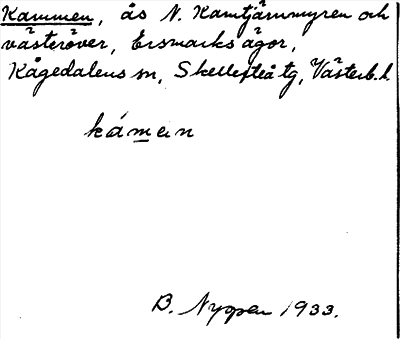 Kammen, ås N. Kamtjärnmyren och
västeröver, Ersmarks ägor,
Kågedalens sn, Skellefteå tg, Västerb. l.
kámen
B. Nygren 1933.